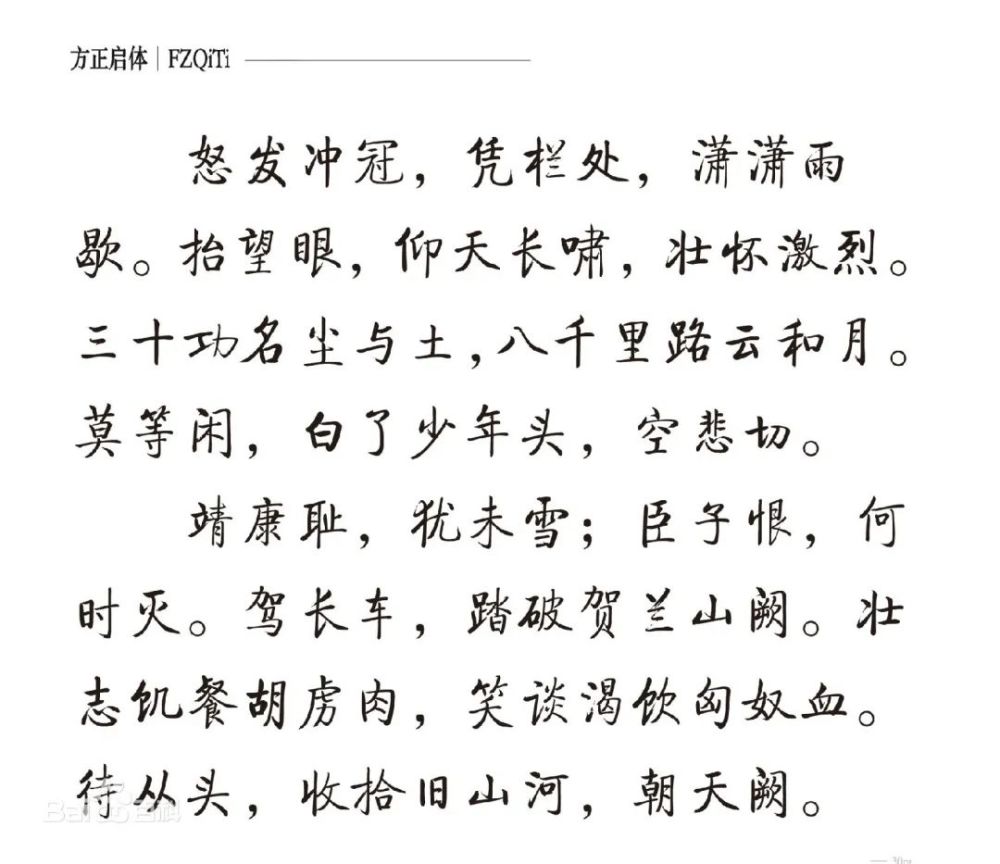 方正启体 | FZQiTi
怒发冲冠，凭栏处，潇潇雨
歇。抬望眼，仰天长啸，壮怀激烈。
三十功名尘与土，八千里路云和月。
莫等闲，白了少年头，空悲切。
靖康耻，犹未雪；臣子恨，何
时灭。驾长车，踏破贺兰山阙。壮
志饥餐胡虏肉，笑谈渴饮匈奴血。
待从头，收拾旧山河，朝天阙。
Baidu百科